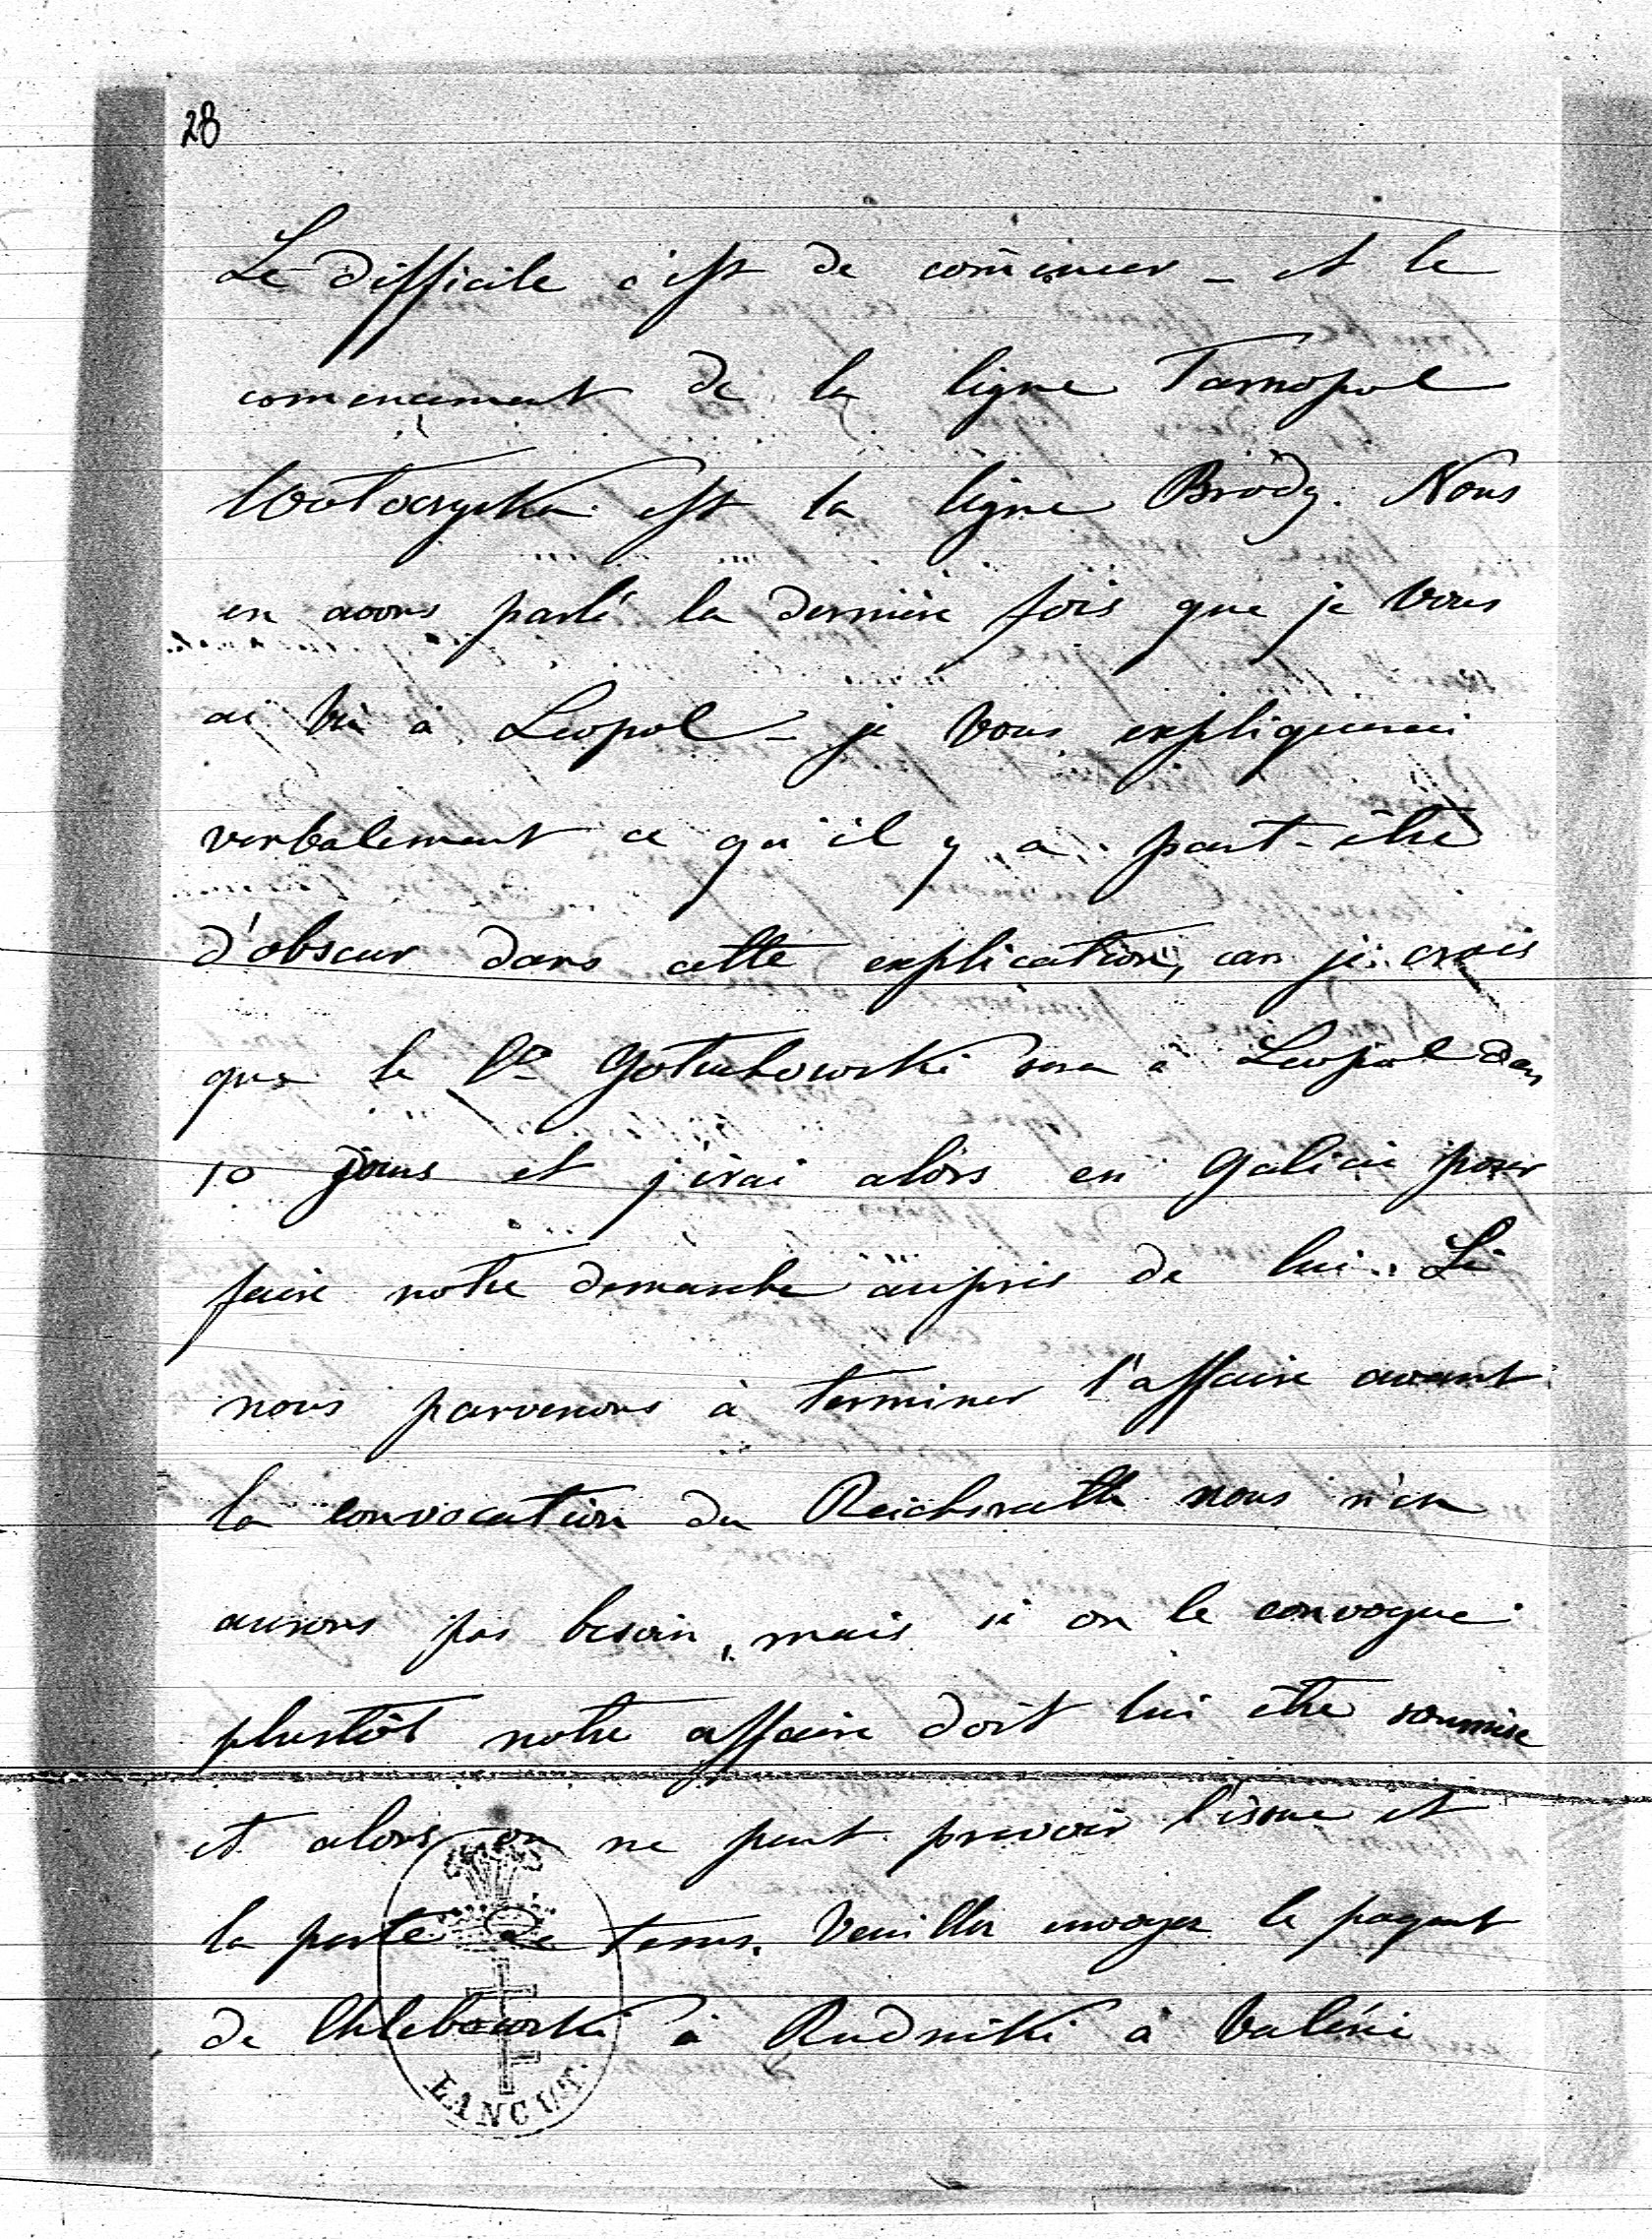 28
Le difficile c'est de com̄encer - et le
commencement de la ligne Tarnopol
Wołoczyska est la ligne Brody. Nous
en avons parlé la dernière fois que je Vous
ai vu à Leopol - je Vous expliquerai
verbalement ce qu'il y a peut-être
d'obscur dans cette explication, car je crois
que le Cte Gołuchowski sera à Leopol dans
10 jours et j'irai alors en Galicie pour
faire notre demarche auprès de lui. Si
nous parvenons à terminer l'affaire avant
la convocation du Reichsrath nous n'en
aurons pas besoin, mais si on le convoque
plustôt notre affaire doit lui être soumise
et alors on ne peut prevoir l'issue et
la perte de tems. Veuillez envoyer le paquet
de Chlebowski à Rudniki à Valérie
ŁAŃCUT